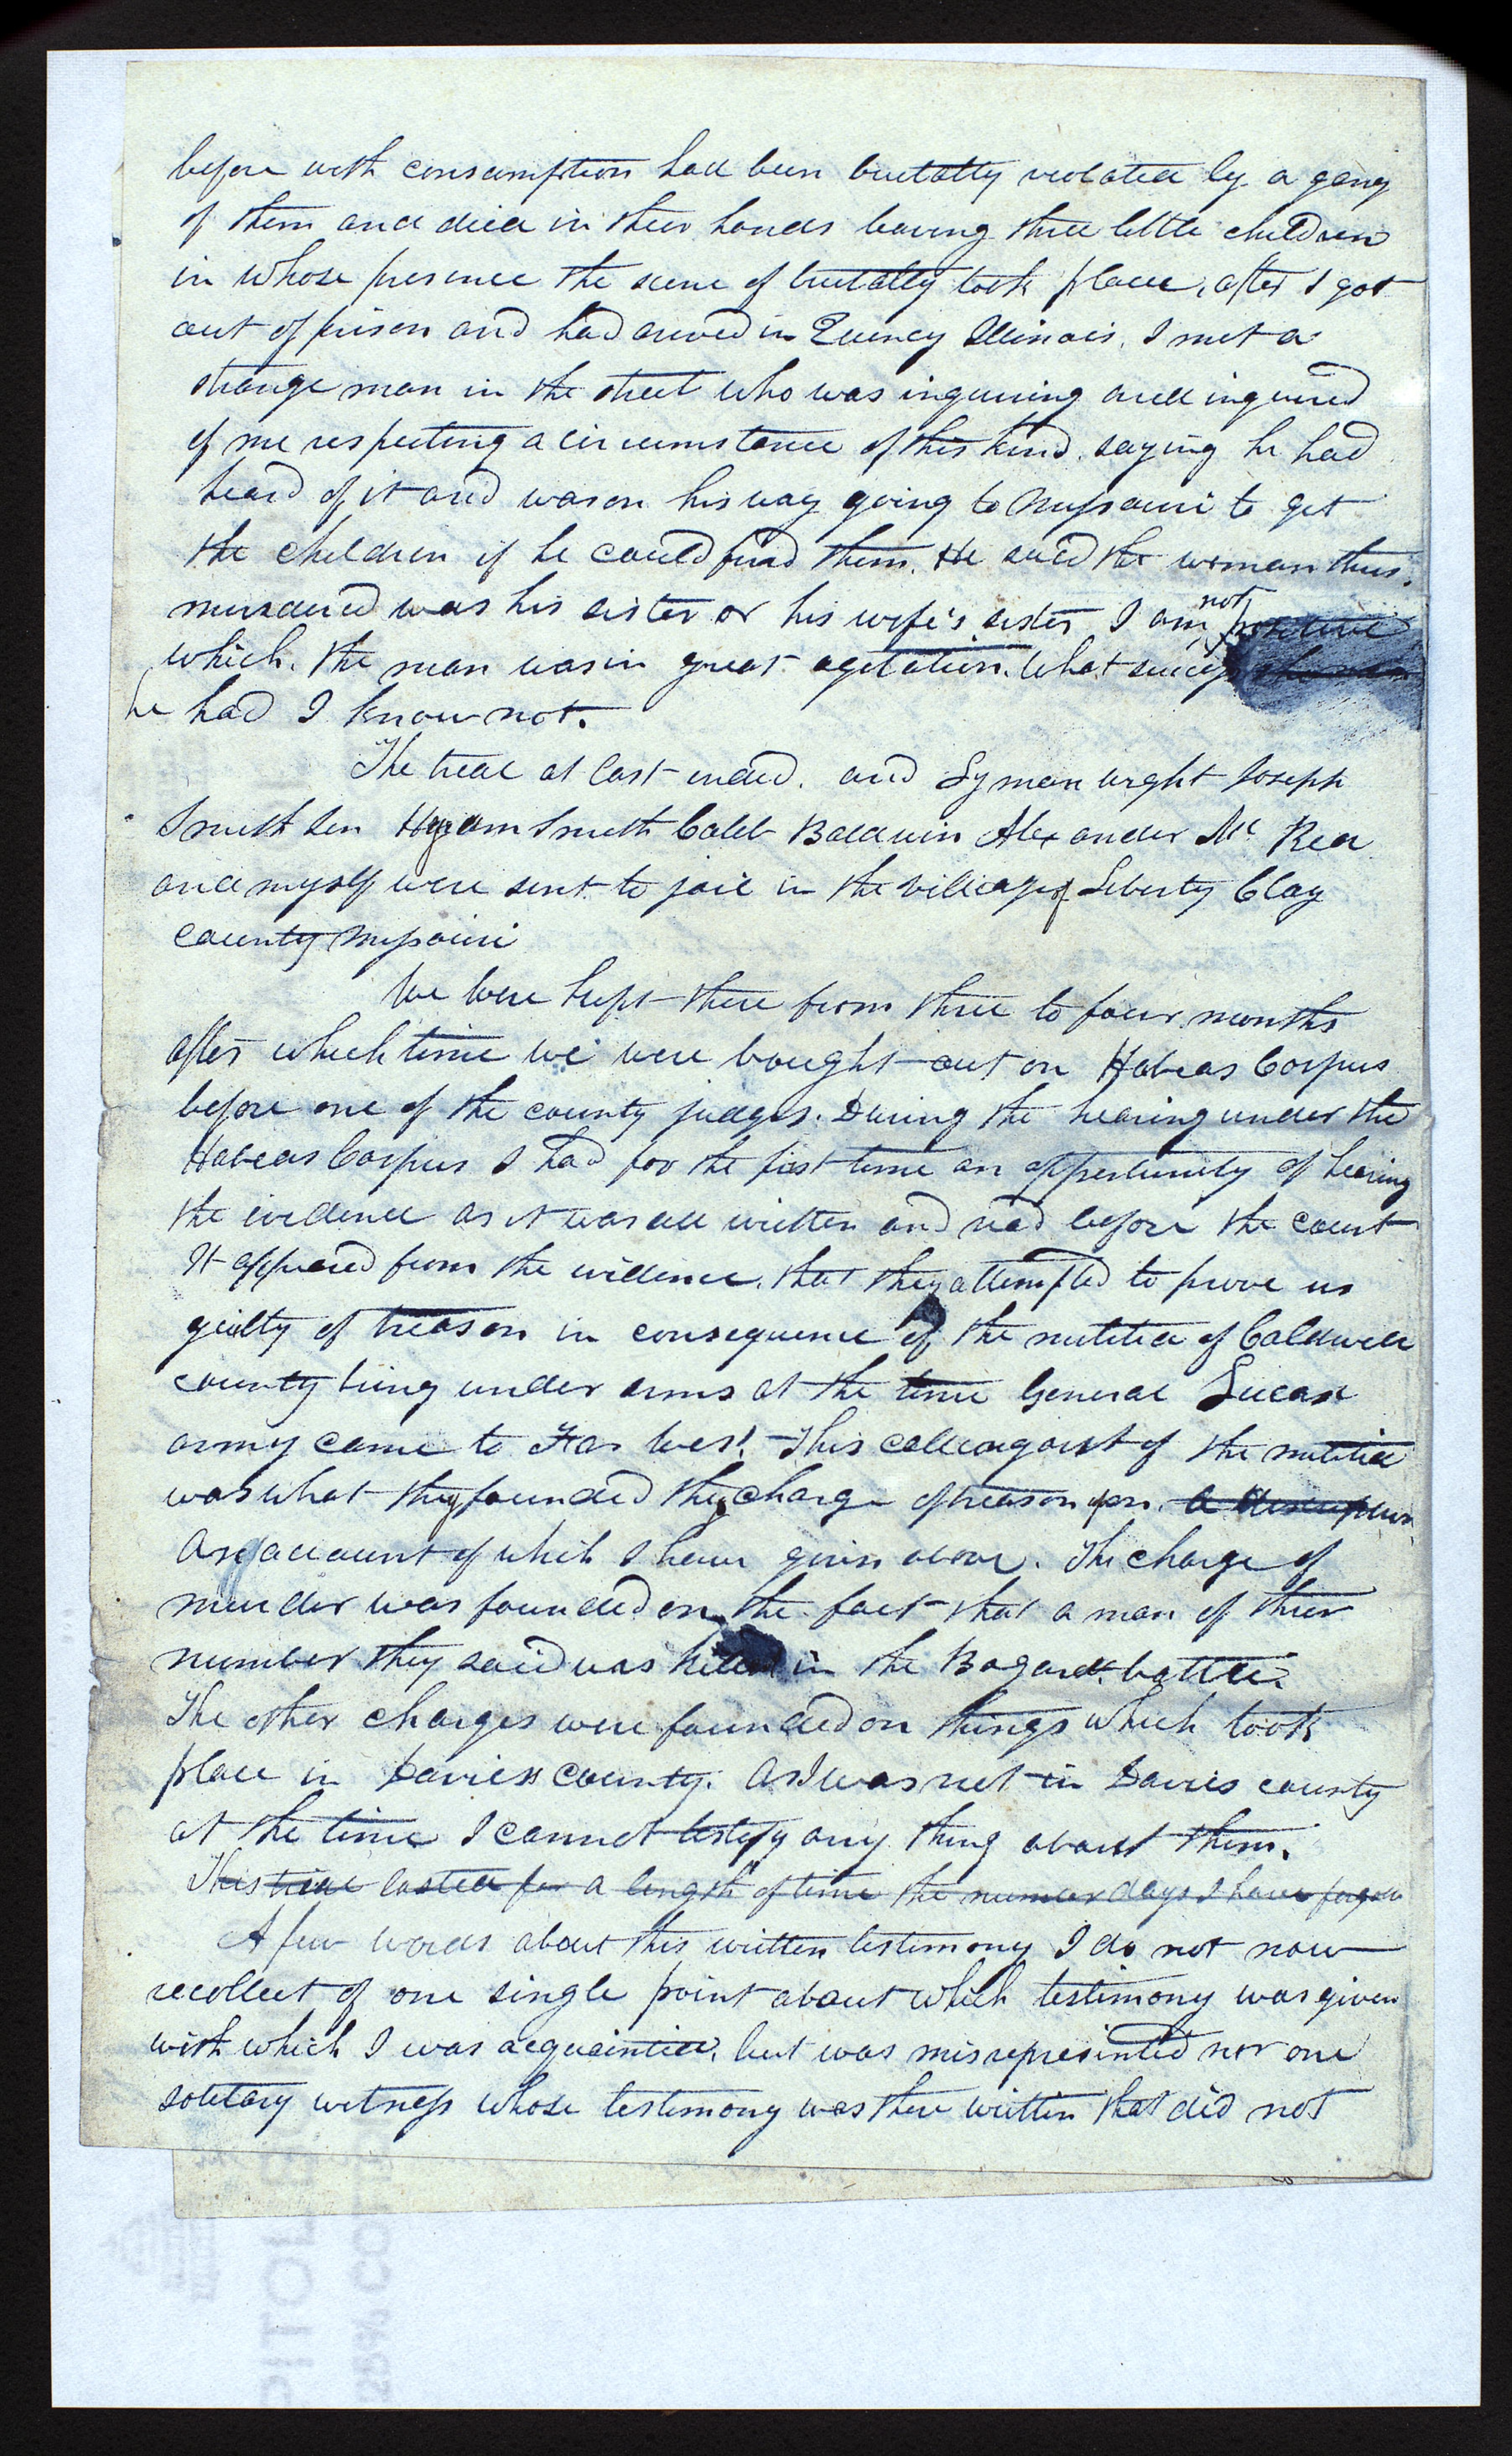 before with consumption had been brutally violated by a gang
of them and died in their hands leaving three little children
in whose presence the scene of brutality took place, after I got
out of prison and had arived in Quincy Illinois, I met a
strange man in the street who was inquiring and inquired
of me respecting a circumstance of this kind, saying he had
heard of it and was on his way going to Missouri to get
the children if he could find them. He said the woman thus
murdered was his sister or his wife's sister I am not positive
which. the man was in great agitation. What success
he had I know not.
The trial at last ended. and Lyman wight Joseph
Smith Sen Hyram Smith Caleb Baldwin Alexander Mc Rea
and myself were sent to jail in the village of Liberty Clay
county Missouri
We were kept there from three to four months
after which time we were brought out on Habeas Corpus
before one of the county judges. During the hearing under the
Habeas Corpus I had for the first time an oppertunity of hearing
the evidence as it was all written and read before the court
It appeared from the evidence. that they attempted to prove us
guilty of treason in consequence of the militia of Caldwell
county being under arms at the time General Lucas
army came to Far West. This calling out of the militia
was what they founded the charge of treason upon
An account of which I have given above. The charge of
murder was founded on the fact that a man of their
number they said was killed in the Bogard battle.
The other charges were founded on things which took
place in Daviess county. As I was not in Davies county
at the time I cannot testify any thing about them.
This trial lasted for a length of time the number days I have
A few words about this written testimony I do not now
recollect of one single point about which testimony was given
with which I was acquainted, but was misrepresinted nor one
solitary witness whose testimony was there written that did not